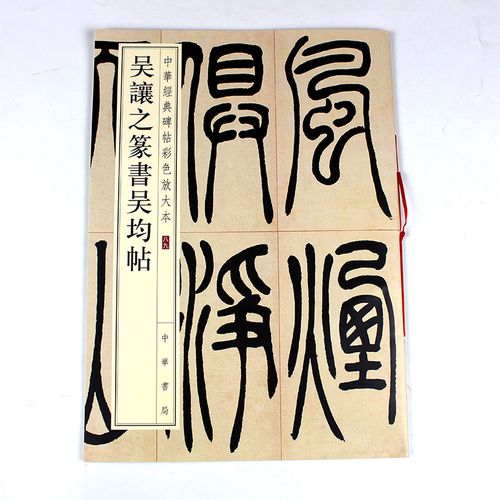 風煙
俱淨
中華經典碑帖彩色放大本
八九
吴讓之篆書吴均帖
中華書局